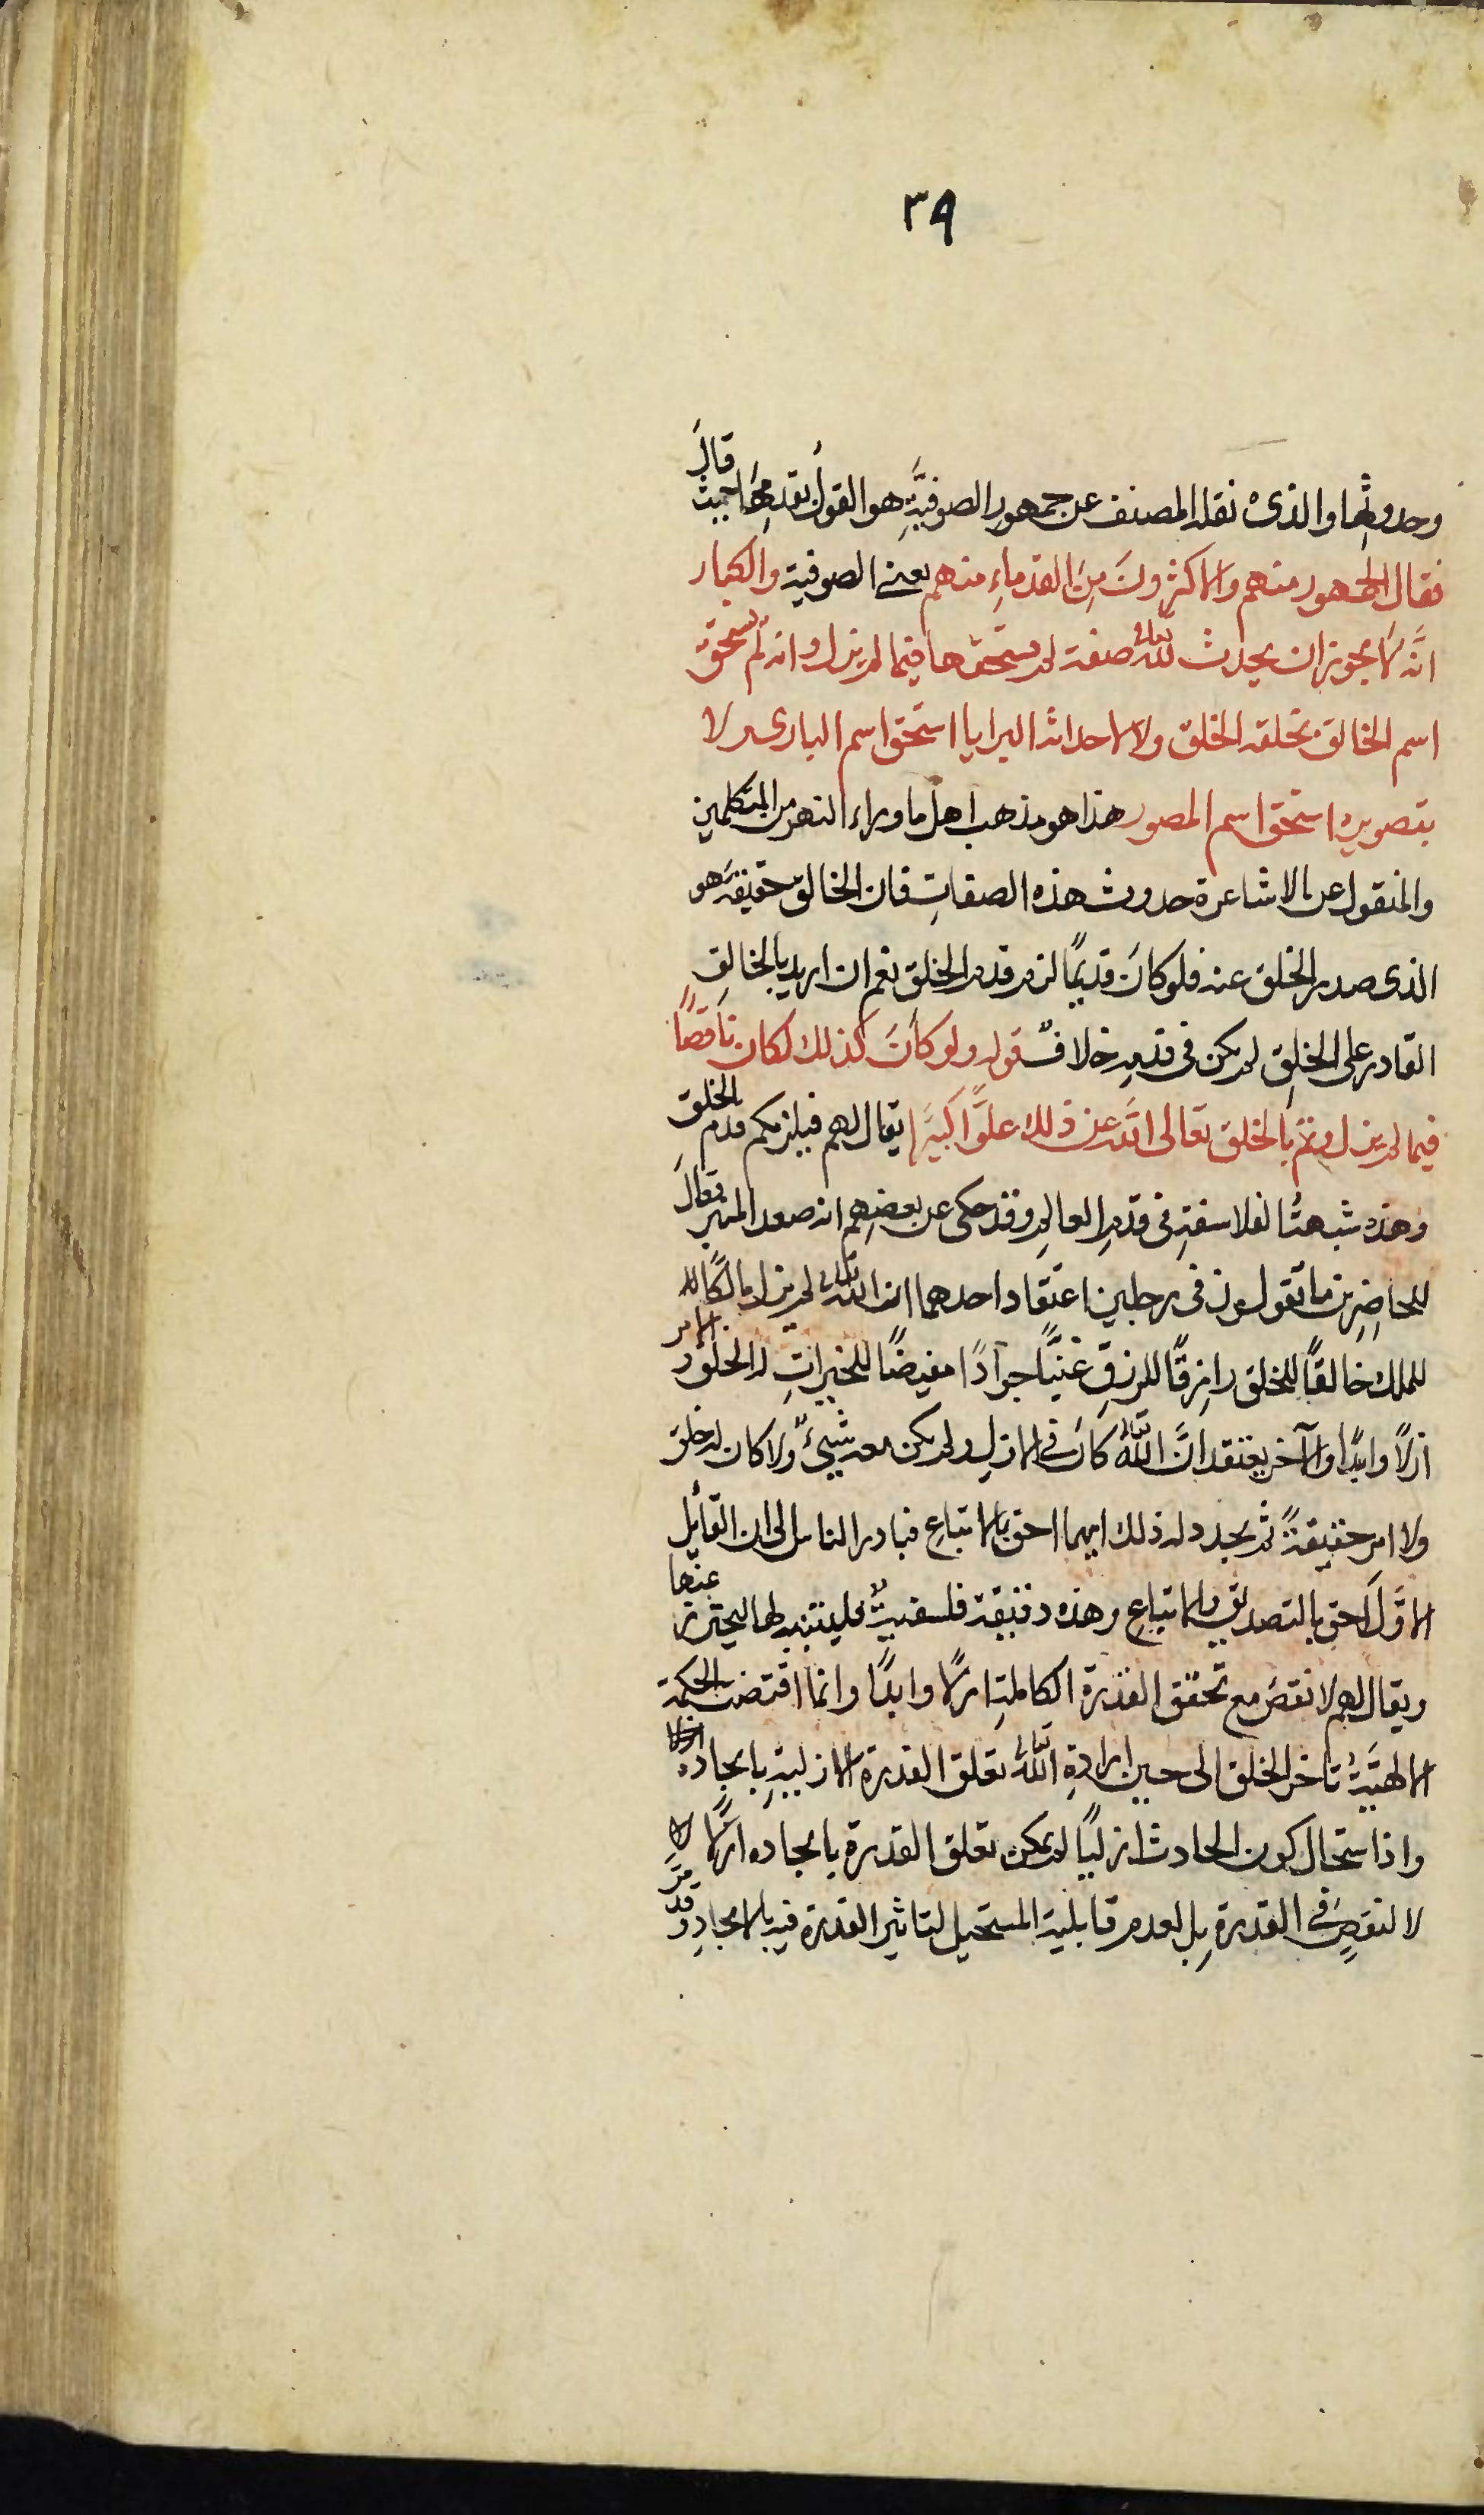 ٣٩
وحدوثها والذى نقله المصنف عن جمهور الصوفيَّةِ هو القولُ بقدمِهَا حيث قالَ
فقال الجمهور منهم والاكثرونَ مِنَ القدماءِ منهم يعنى الصوفية والكبار
انَّه لا يجوز ان يحدث للّٰه تعالى صفة لم يستحقها فيما لم يزل وانه لم يستحق
اسم الخالق بخلقه الخلق ولا لاحداثه البرايا استحق اسم البارى ولا
بتصويره استحق اسم المصور هذا هو مذهب اهل ماوراء النهر من المتكلمين
والمنقول عن الاشاعرة حدوث هذه الصفاتِ فان الخالق حقيقةً هو
الذى صدر الخلق عنه فلو كانَ قديمًا لزم قدم الخلق نعم ان اريد بالخالقِ
القادر على الخلقِ لم يكن فى قدمِه خلافٌ قوله ولو كانَ كذلك لكان ناقصًا
فيما لم يزل وتم بالخلق تعالى اللّٰه عن ذلك علوًّا كبيرًا يقال لهم فيلزمكم قدم الخلق
وهذه شبهةُ الفلاسفةِ فى قدمِ العالمِ وقد حكى عن بعضِهم انه صعد المنبر فقالَ
للحاضِرين ما تقولون فى رجلين اعتقاد احدهما ان اللّٰه تعالى لم يزل مالكًا
للملك خالقًا للخلق رازقًا للرزقِ غنيًّا جوادًا مفيضًا للخيراتِ له الخلق والامر
ازلًا وابدًا والآخر يعتقد انَّ اللّٰه تعالى كانَ فى الازلِ ولم يكن معه شيىٌٔ ولا كان له خلق
ولا امر حقيقةً ثم يجدد له ذلك ايهما احق بالاتباعِ فبادر الناس الى ان القائل
الاوَّل احق بالتصديق والاتباعِ وهذه دقيقة فلسفيةٌ فلينتبه لها ليحترز عنها
ويقال لهم لا نقصَ مع تحقق القدرة الكاملةِ ازلًا وابدًا وانما اقتضت الحكمة
الالهيَّةُ تاخر الخلق الى حين ارادةِ اللّٰه تعالى تعلق القدرة الازليةِ بايجاده
واذا ستحال كون الحادث ازليًا لم يمكن تعلق القدرة بايجاده ازلًا
لا لنقصٍ فى القدرة بل لعدم قابلية المستحيل لتاثير القدرة فيه بالايجادِ وقد مرَّ